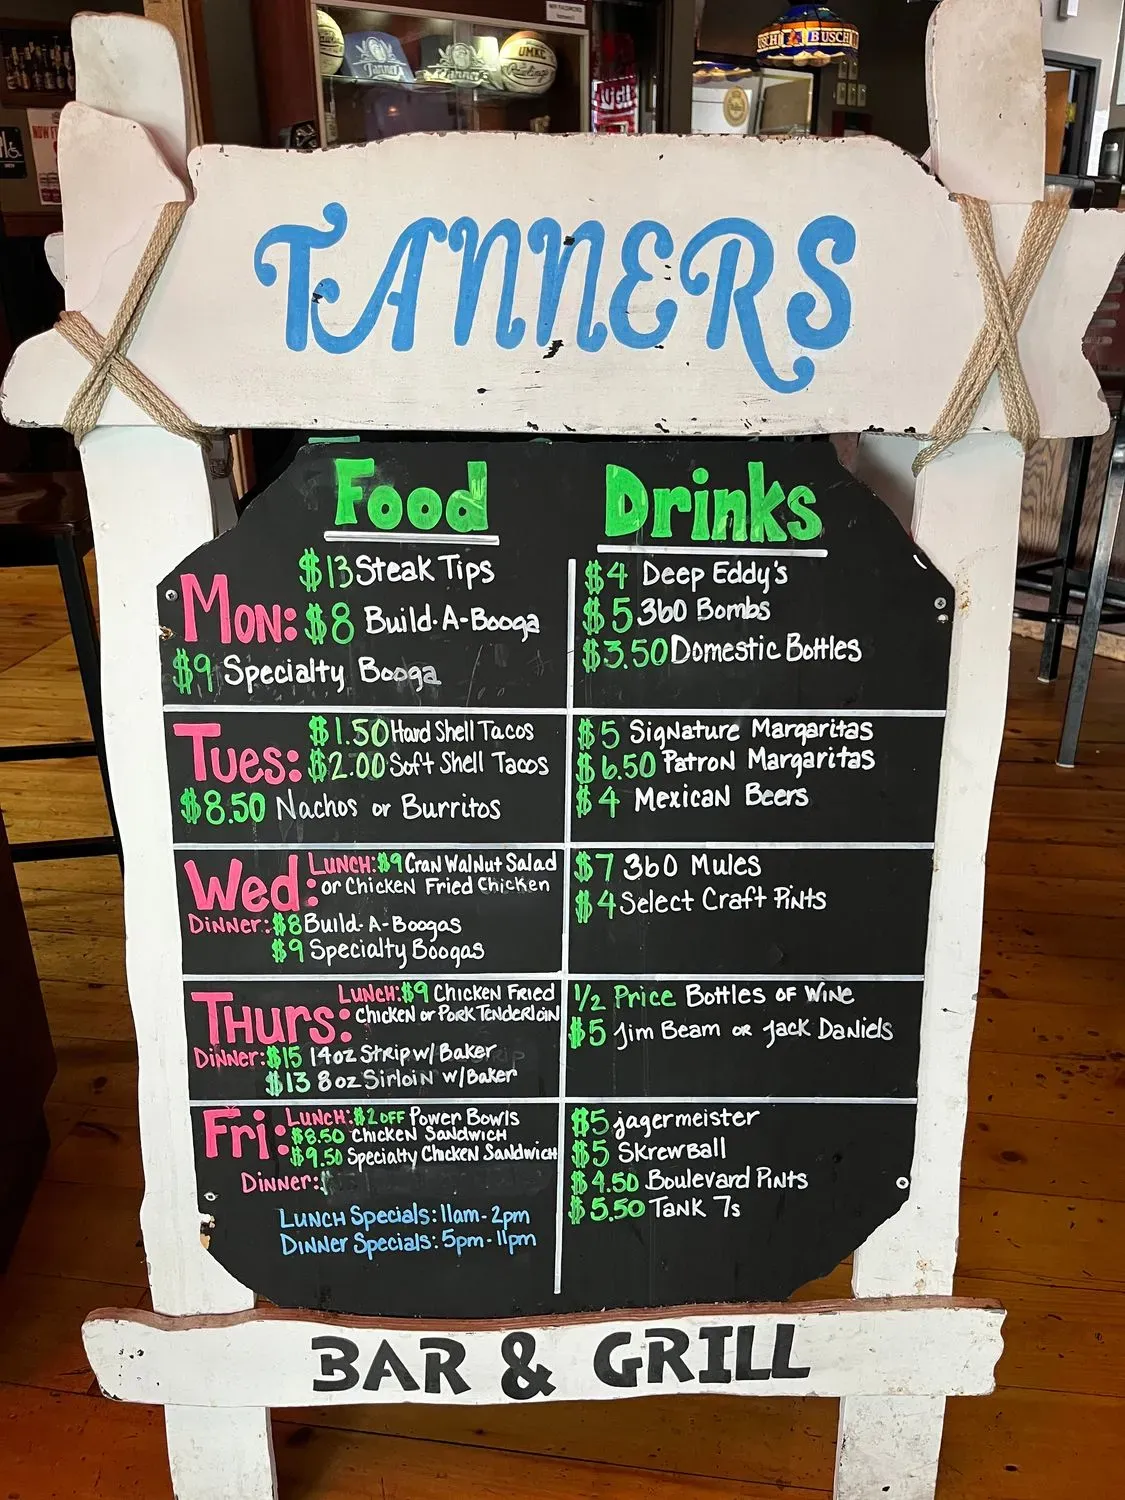 UMKC
Rawlings
Tanner
BUSCH
BUSCH
TANNERS
Food
Drinks
Mon:
$13 Steak Tips
$8 Build-A-Booga
$9 Specialty Booga
$4 Deep Eddy's
$5 360 Bombs
$3.50 Domestic Bottles
Tues:
$1.50 Hard Shell Tacos
$2.00 Soft Shell Tacos
$8.50 Nachos or Burritos
$5 Signature Margaritas
$6.50 Patron Margaritas
$4 Mexican Beers
Wed:
Lunch: $9 Cran Walnut Salad
or Chicken Fried Chicken
Dinner: $8 Build-A-Boogas
$9 Specialty Boogas
$7 360 Mules
$4 Select Craft Pints
Thurs:
Lunch: $9 Chicken Fried
Chicken or Pork Tenderloin
Dinner: $15 14oz Strip w/ Baker
$13 8oz Sirloin w/Baker
1/2 Price Bottles of Wine
$5 Jim Beam or Jack Daniels
Fri:
Lunch: $2 off Power Bowls
$8.50 Chicken Sandwich
$9.50 Specialty Chicken Sandwich
Dinner:
$5 jagermeister
$5 Skrewball
$4.50 Boulevard Pints
$5.50 Tank 7s
Lunch Specials: 11am-2pm
Dinner Specials: 5pm-11pm
BAR & GRILL